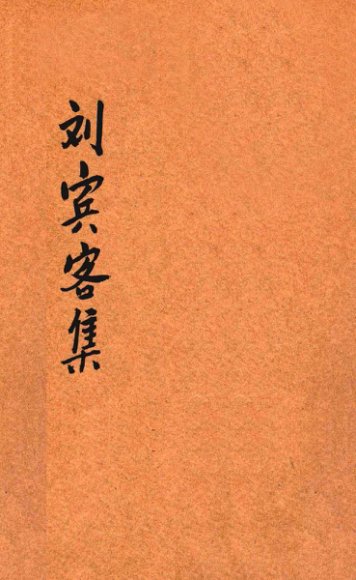 刘宾客集